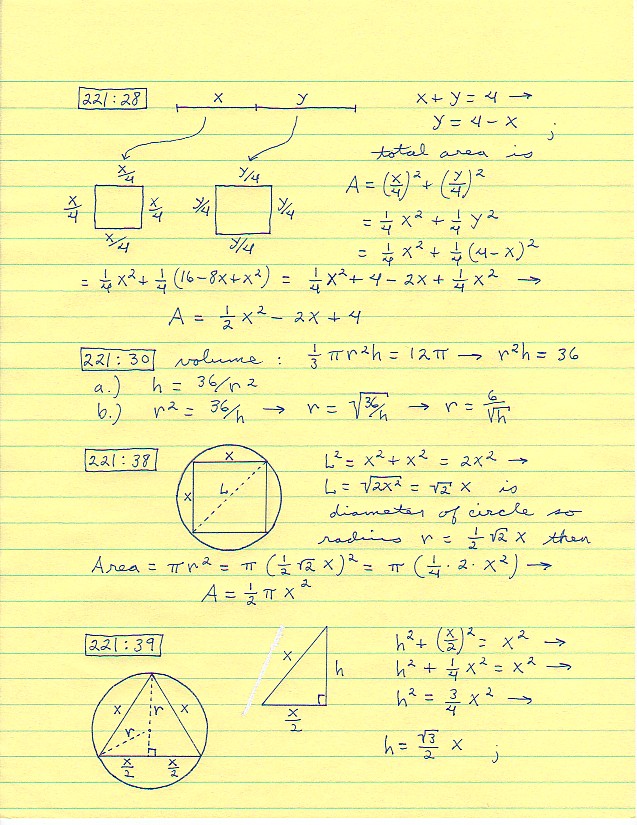 221:28 x y x + y = 4 →
y = 4 - x ;
total area is
x/4 y/4 A = (x/4)² + (y/4)²
x/4 x/4 y/4 y/4
= 1/4 x² + 1/4 y²
x/4 y/4
= 1/4 x² + 1/4 (4-x)²
= 1/4 x² + 1/4 (16 - 8x + x²) = 1/4 x² + 4 - 2x + 1/4 x² →
A = 1/2 x² - 2x + 4
221:30 volume : 1/3 πr²h = 12π → r²h = 36
a.) h = 36/r²
b.) r² = 36/h → r = √36/h → r = 6/√h
221:38 x L² = x² + x² = 2x² →
x L L = √2x² = √2 x is
diameter of circle so
radius r = 1/2 √2 x then
Area = πr² = π (1/2 √2 x)² = π (1/4 · 2 · x²) →
A = 1/2 π x²
221:39 h² + (x/2)² = x² →
x h h² + 1/4 x² = x² →
x r x h² = 3/4 x² →
r x/2
h = √3/2 x ;
x/2 x/2